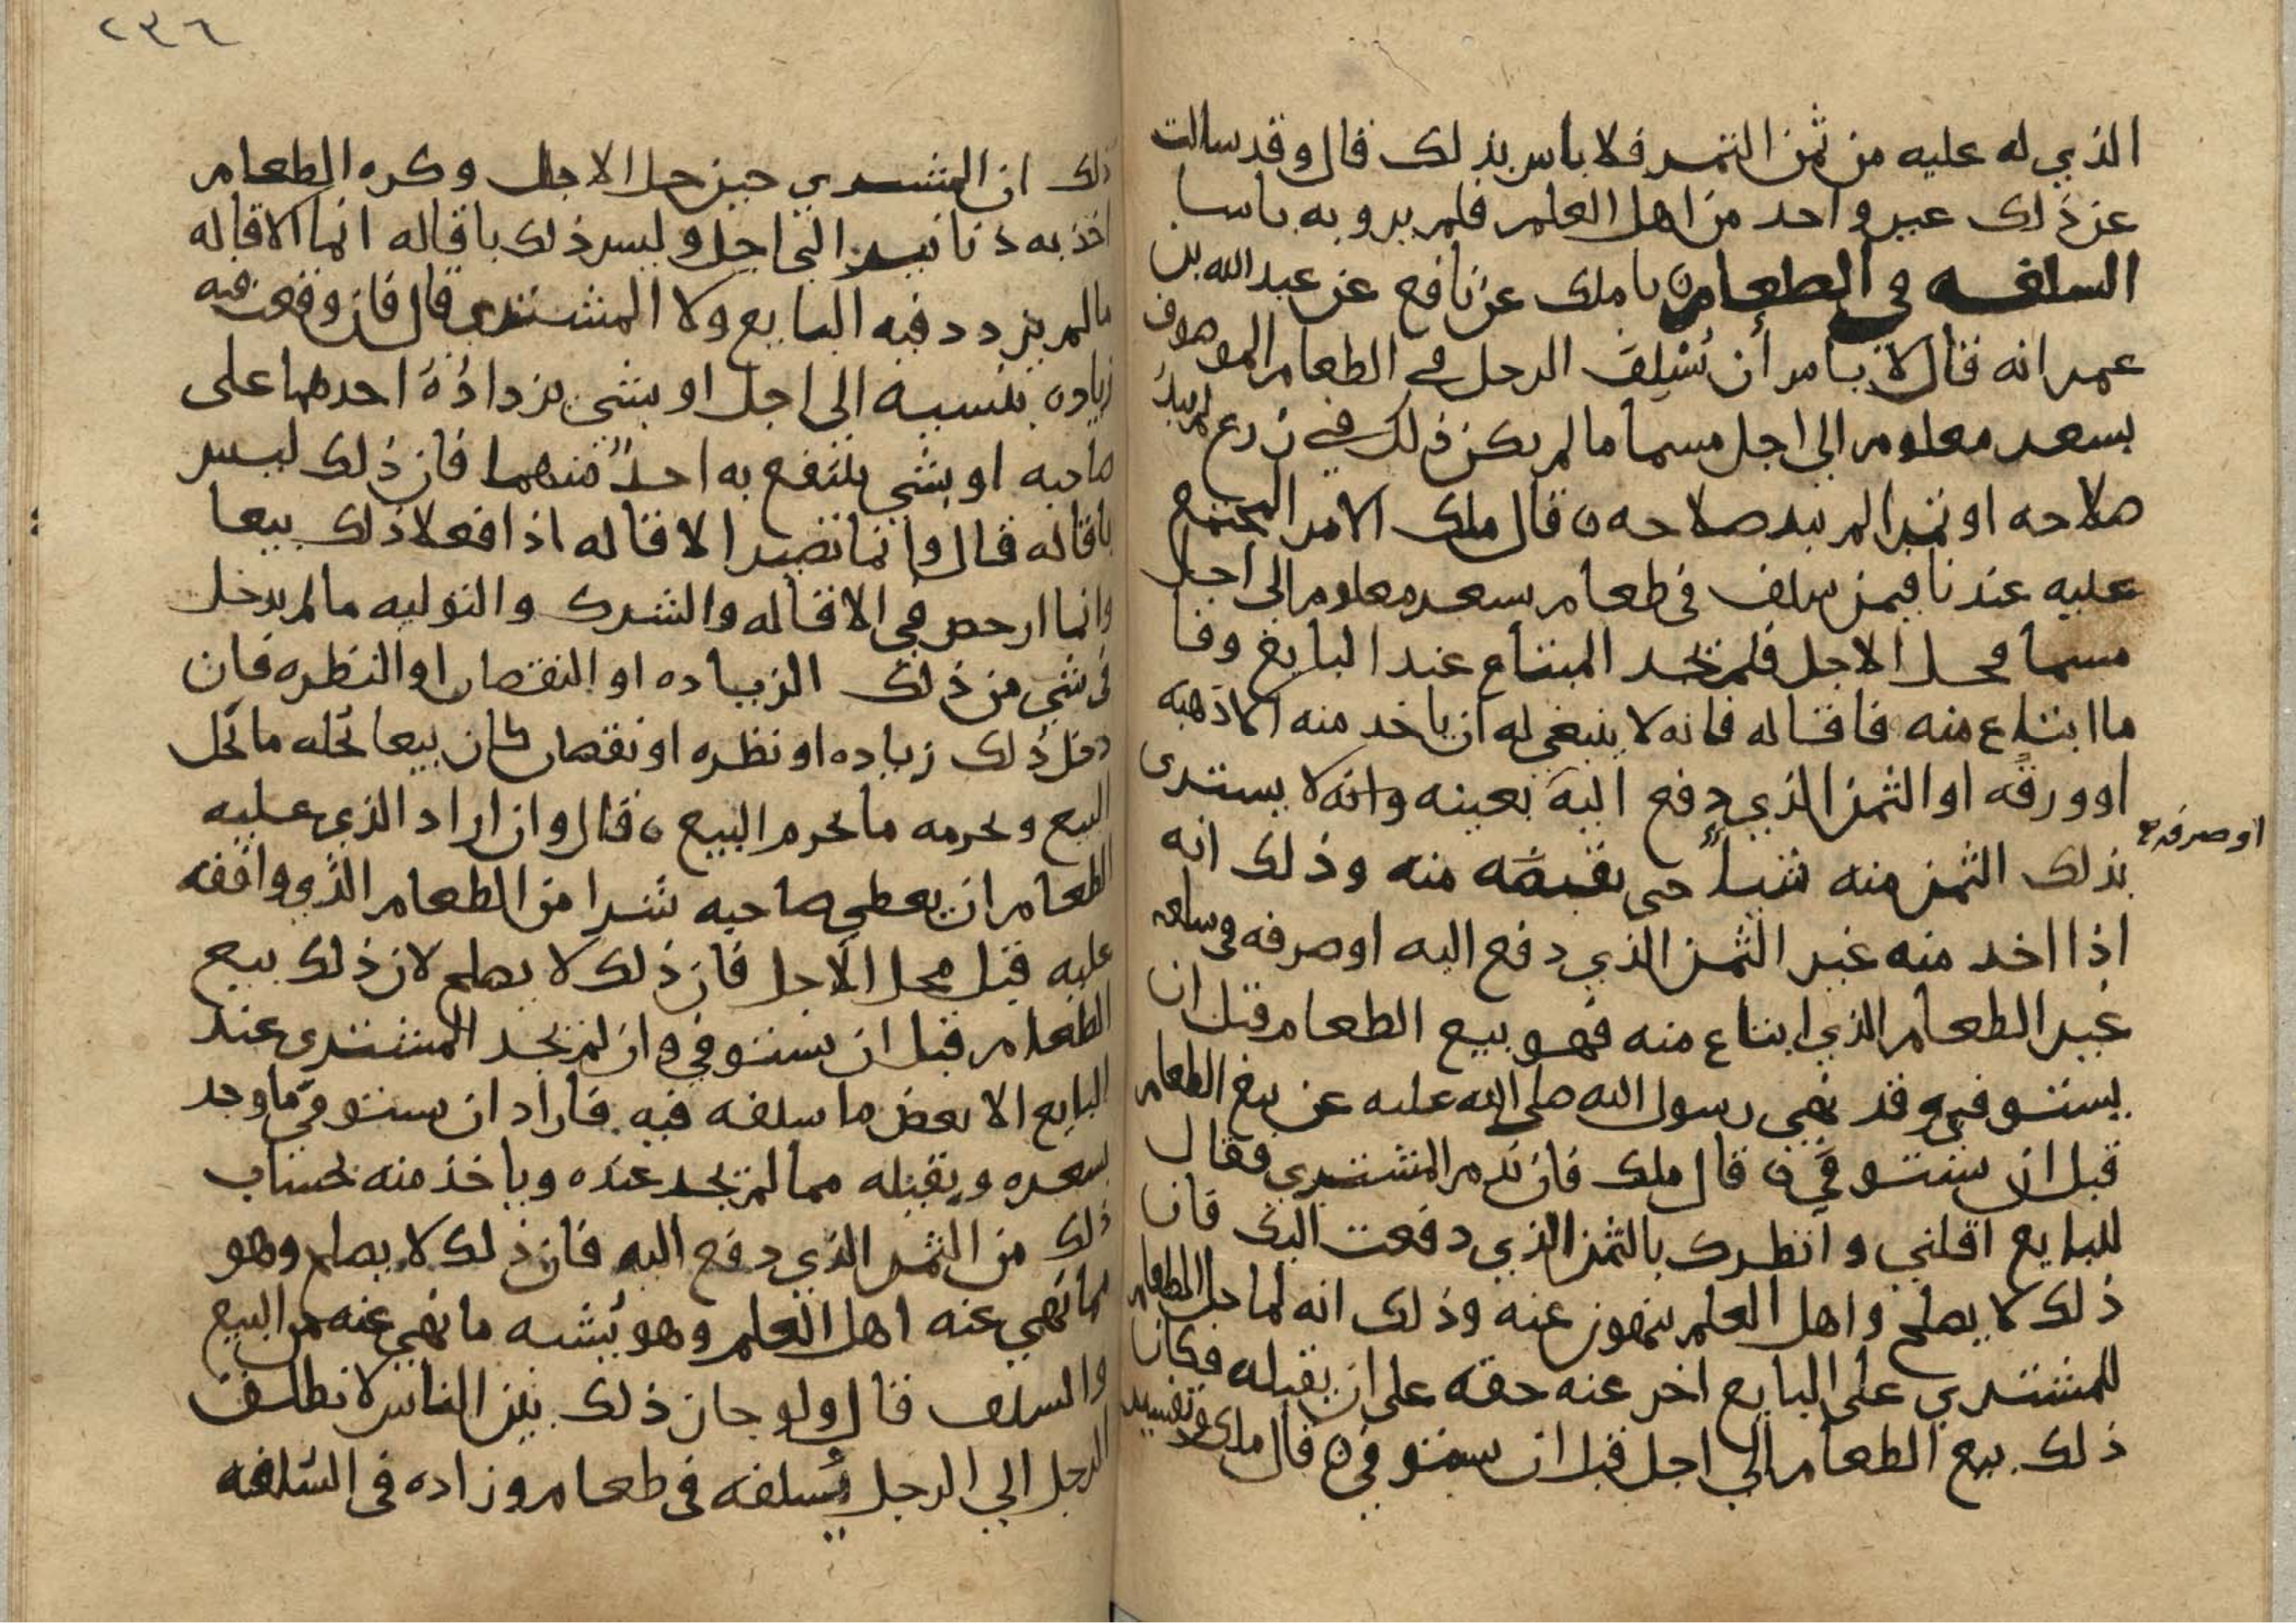 الذي له عليه من ثمن التمر فلا باس بذلك قال وقد سالت
عن ذلك غير واحد من اهل العلم فلم يروبه باسا
السلفه في الطعام ٥ نا ملك عن نافع عن عبد الله بن
عمر انه قال لا باس أن يُسْلِفَ الرجل في الطعام الموصوف
بسعر معلوم الى اجل مسما ما لم يكن ذلك في زرع لم يبدُ
صلاحه او تمرا لم يبد صلاحه ٥ قال ملك الامر المجتمع
عليه عندنا فيمن سلف في طعام بسعر معلوم الى اجل
مسما فحل الاجل فلم يجد المبتاع عند البايع وفا
ما ابتاع منه فاقاله فانه لا ينبغي له ان ياخد منه الا ذهبه
او ورقه او الثمن الذي دفع اليه بعينه وانه لا يشتري
او صرفه
بذلك الثمن منه شياً حتى يقبضه منه وذلك انه
اذا اخد منه غير الثمن الذي دفع اليه او صرفه في سلعه
غير الطعام الذي ابتاع منه فهو بيع الطعام قبل ان
يستوفي وقد نهى رسول الله صلى الله عليه عن بيع الطعام
قبل ان يستوفى ٥ قال ملك فان ندم المشتري فقال
للبايع اقلني وأنظرك بالثمن الذي دفعت اليك فان
ذلك لا يصلح واهل العلم ينهون عنه وذلك انه لما حل الطعام
للمشتري على البايع اخر عنه حقه على ان يقيله فكان
ذلك بيع الطعام الى اجل قبل ان يستوفى ٥ قال ملك وتفسير
٢٣٦
ذلك ان المشتري حين حل الاجل وكره الطعام
اخذ به دنانير الى اجل وليس ذلك باقاله انما الاقاله
ما لم يزدد فيه البايع ولا المشتري قال فان وقعت فيه
زياده بنسيه الى اجل او بشي يزدادُهُ احدهما على
صاحبه او بشي ينتفع به احدٌ منهما فان ذلك ليس
باقاله قال وانما تصير الاقاله اذا فعلا ذلك بيعا
وانما ارخص في الاقاله والشرك والتوليه ما لم يدخل
في شي من ذلك الزياده او النقصان او النظره فان
دخل ذلك زياده او نظره او نقصان كان بيعا يُحله ما يُحل
البيع ويحرمه ما يحرم البيع ٥ قال وان اراد الذي عليه
الطعام ان يعطي صاحبه شرا من الطعام الذي واقفه
عليه قبل محل الاجل فان ذلك لا يصلح لان ذلك بيع
الطعام قبل ان يستوفى وان لم يجد المشتري عند
البايع الا بعض ما سلفه فيه فاراد ان يستوفي ما وجد
بسعره ويقيله مما لم يجد عنده وياخذ منه بحساب
ذلك من الثمن الذي دفع اليه فان ذلك لا يصلح وهو
مما نهى عنه اهل العلم وهو يُشبه ما نهي عنه من البيع
والسلف قال ولو جاز ذلك بين الناس لانطلق
الرجل الى الرجل يُسلفه في طعام وزاده في السُلفه